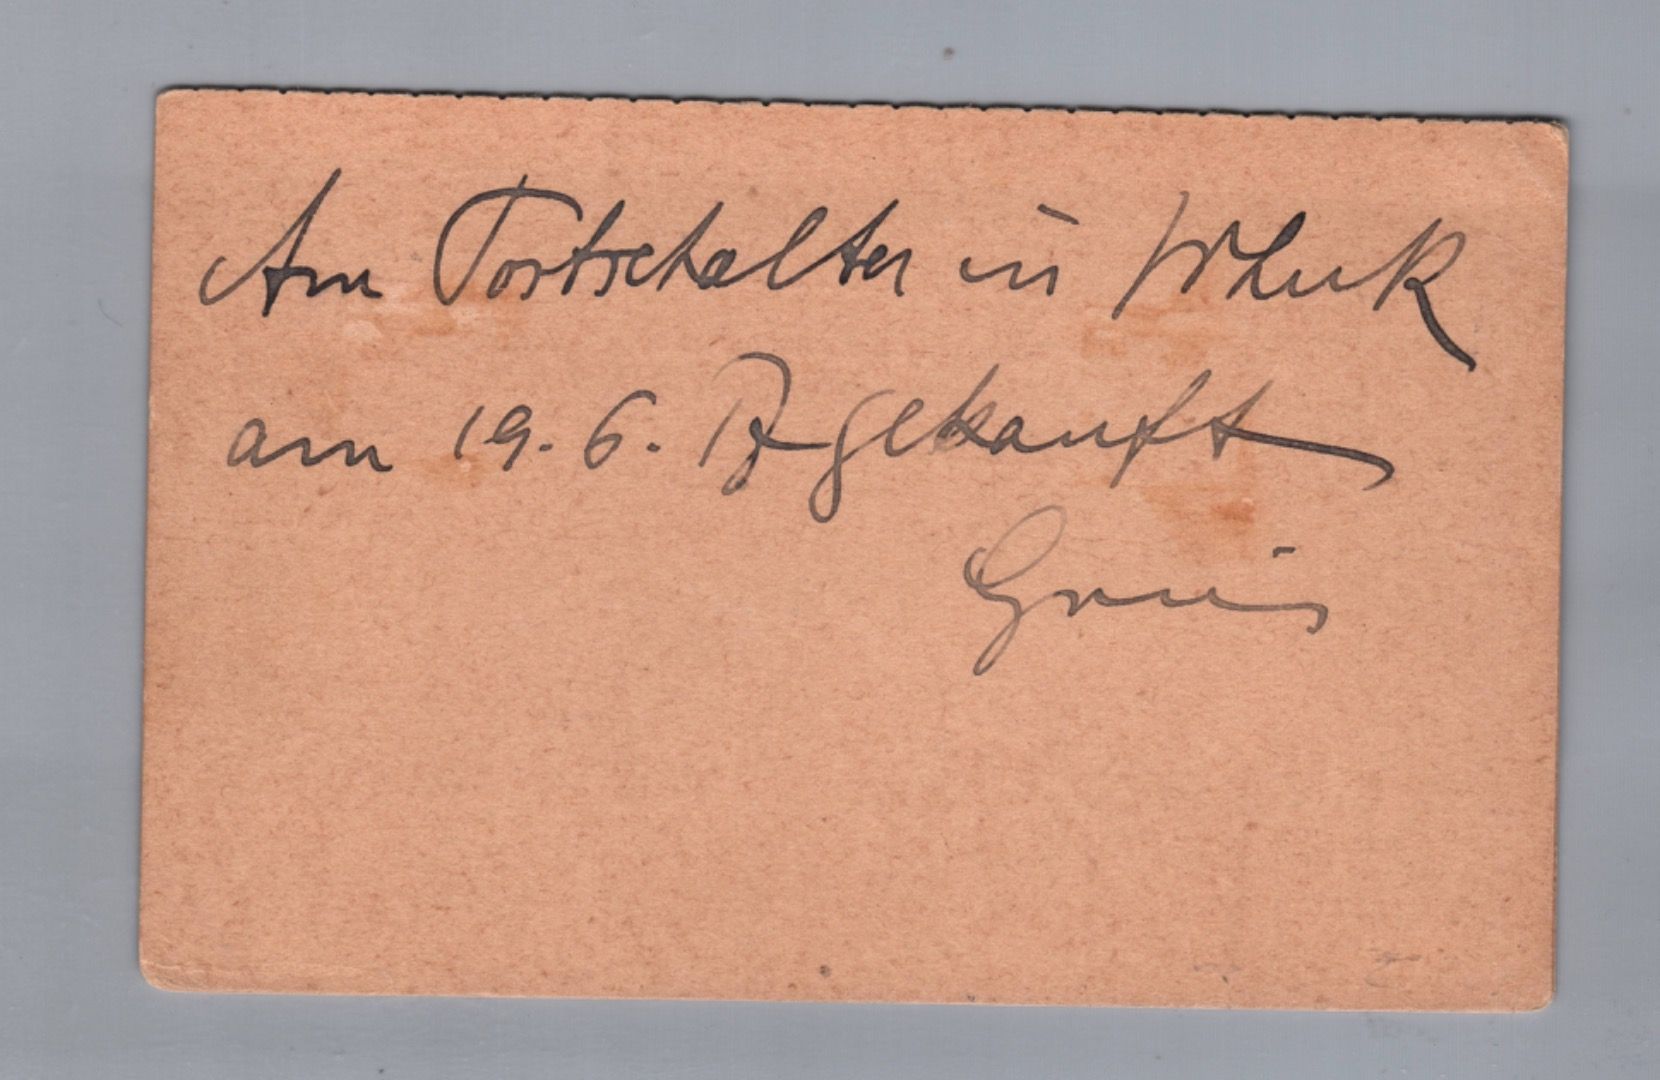 Am Postschalter in
am 19. 6. 17 gekauft